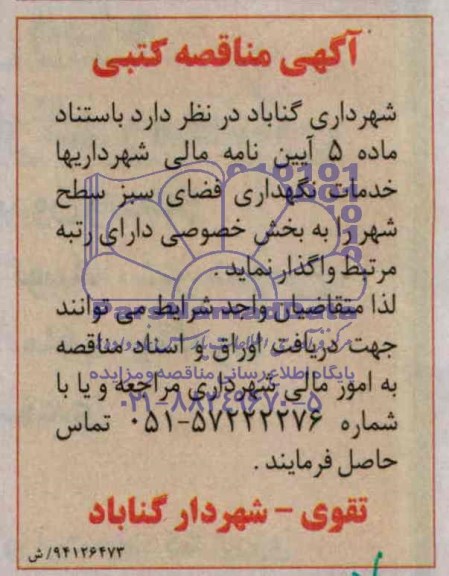 آگهی مناقصه کتبی
شهرداری گناباد در نظر دارد باستناد
ماده ۵ آیین نامه مالی شهرداریها
خدمات نگهداری فضای سبز سطح
شهر را به بخش خصوصی دارای رتبه
مرتبط واگذار نماید.
لذا متقاضیان واجد شرایط می توانند
ParsNamadData
جهت دریافت اوراق و اسناد مناقصه
پایگاه اطلاع رسانی مناقصه و مزایده
به امور مالی شهرداری مراجعه و یا با
۰۲۱-۸۸۳۴۹۶۷۰-۵
شماره ۵۷۲۲۲۲۷۶-۰۵۱ تماس
حاصل فرمایند.
تقوی - شهردار گناباد
۹۴۱۲۶۴۷۳/ش